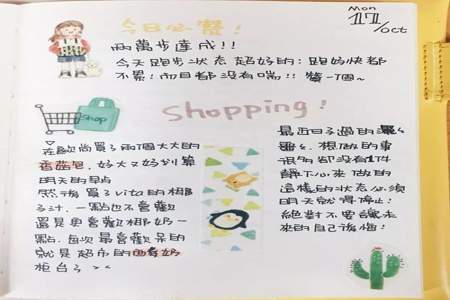 今日必餐!
Mon
17
/oct
兩萬步達成!!
今天跑步狀态超好的:跑好快都
不累!而且都沒有喘!! 讚一個~
Shop
Shopping!
在歐尚買了兩個大大的
香菇包,好大又好划算
明天的早點
然後買了vita的椰
子汁,一點也不喜歡
還是更喜歡椰奶一
點.每次最喜歡呆的
就是超市的奶
柜台了><
最近日子過的
想做的事
很多卻沒有1件
靜下心來做的
這樣的狀态必須
明天就得停止!
絕對不要讓未
來的自己後悔!